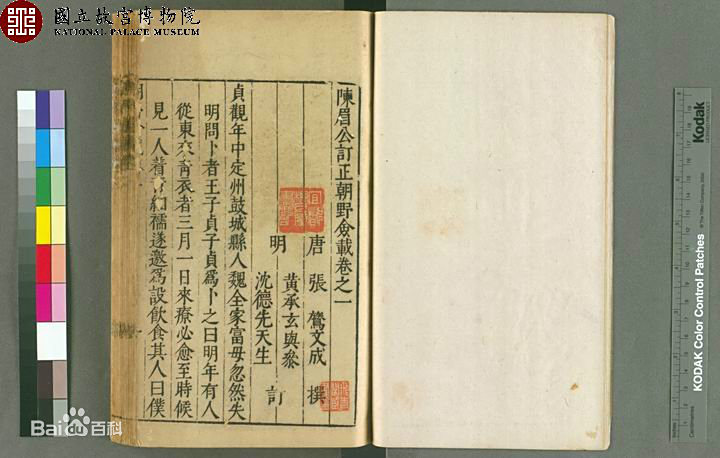 國立故宮博物院
NATIONAL PALACE MUSEUM
陳眉公訂正朝野僉載卷之一
唐 張 鷟文成 撰
明 黃承玄與參
沈德先天生 訂
貞觀年中定州鼓城縣人魏全家富母忽然失
明問卜者王子貞子貞爲卜之曰明年有人
從東來青衣者三月一日來療必愈至時候
見一人着青紬襦遂邀爲設飲食其人曰僕
Kodak
KODAK Color Control Patches
Centimetres
Bai du 百科